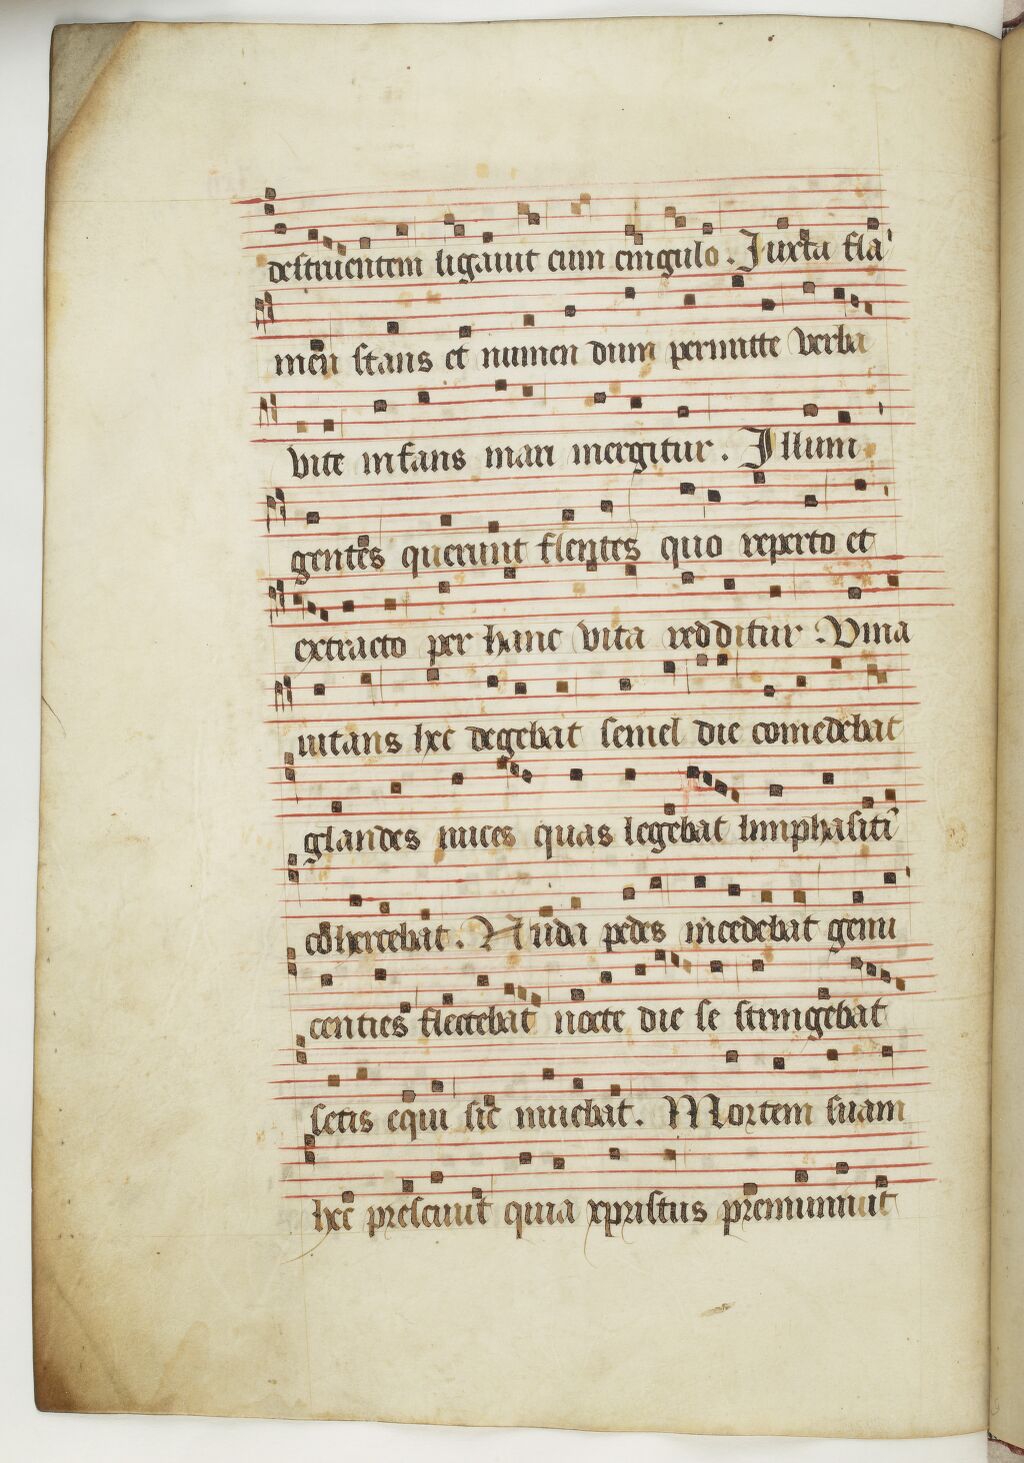 destruentem ligauit cum cingulo. Iuxta flu
men stans et numen dum permitte verba
vite infans mari mergitur. Illum
gentes querunt flentes quo reperto et
extracto per hanc vita redditur. Vina
uitans hec degebat semel die comedebat
glandes nuces quas legebat limphasiti
cohercebat. Nuda pedes incedebat genu
centies flectebat nocte die se stringebat
setis equi sic niuebat. Mortem suam
hec presciuit quia xpristus premuniuit